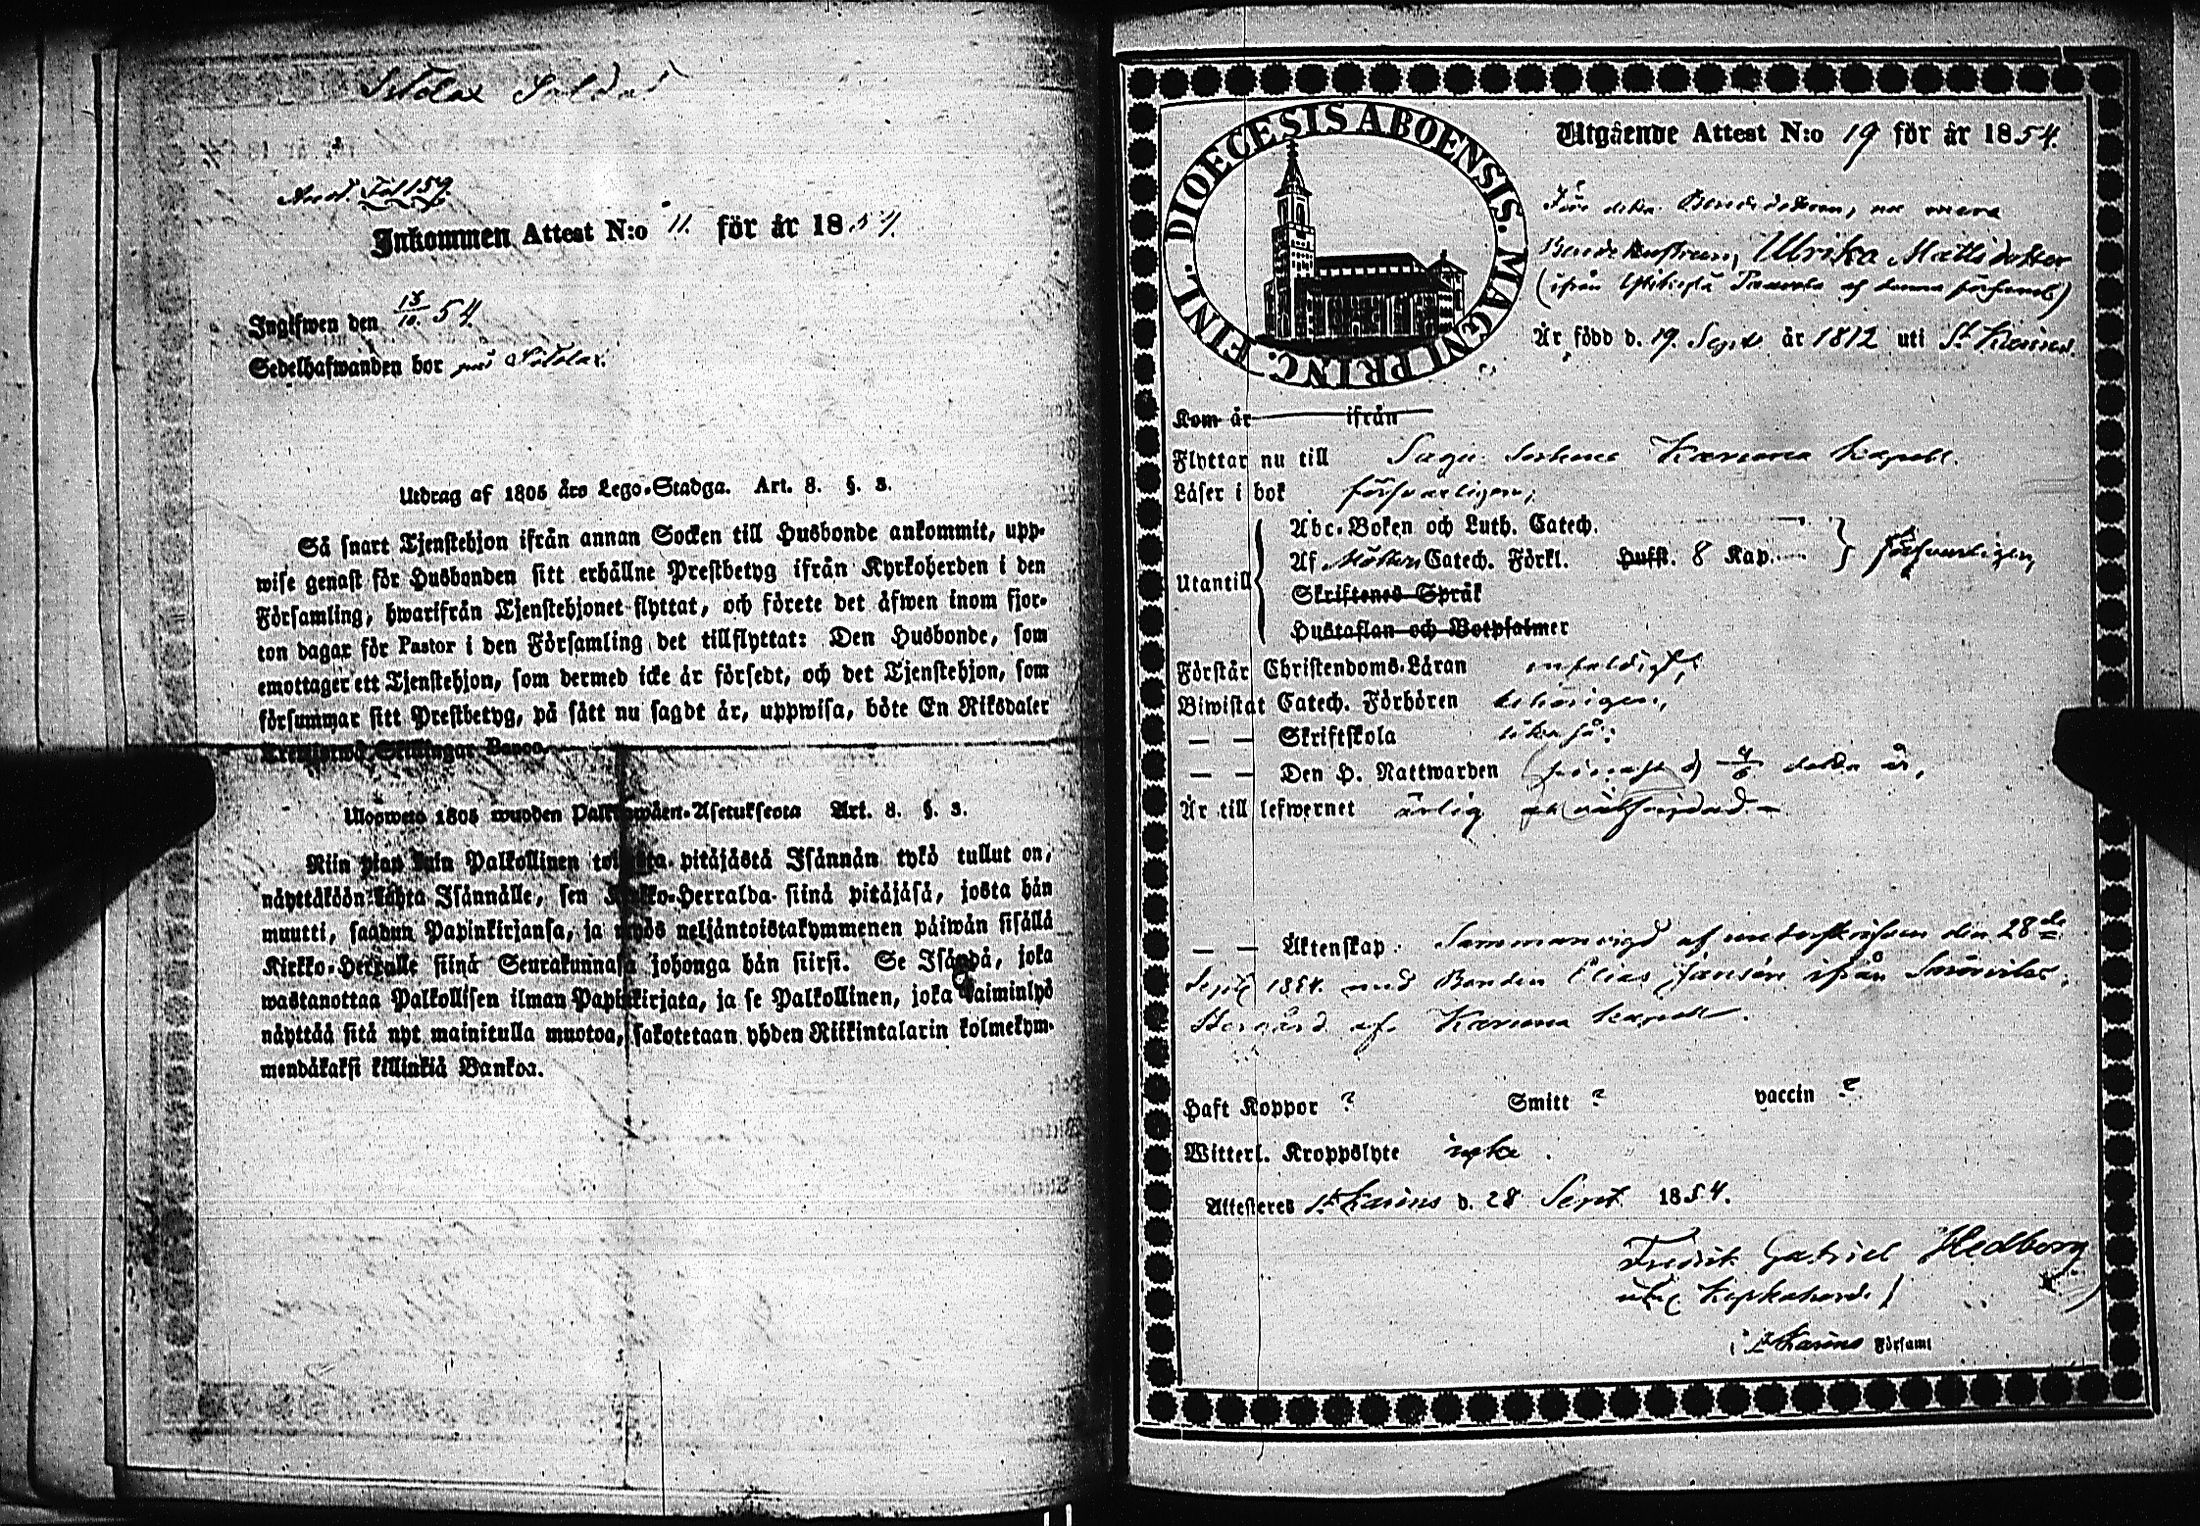 Soldat
Anot. Fol 159.
Inkommen Attest N:o 11. för år 1854.
Ingifwen den 13/10. 54.
Sedelhafwanden bor
Utdrag af 1805 års Lego-Stadga. Art. 8. §. 3.
Så snart Tjenstehjon ifrån annan Socken till Husbonde ankommit, upp-
wise genast för Husbonden sitt erhållne Prestbetyg ifrån Kyrkoherden i den
Församling, hwarifrån Tjenstehjonet flyttat, och förete det äfwen inom fjor-
ton dagar för Pastor i den Församling det tillflyttat: Den Husbonde, som
emottager ett Tjenstehjon, som dermed icke är försedt, och det Tjenstehjon, som
försummar sitt Prestbetyg, på sätt nu sagdt är, uppwisa, böte En Riksdaler
Trettiotwå Skillingar Banco.
Ulosweto 1805 wuoden Palkkowäen-Asetuksesta Art. 8. §. 3.
Niin pian kuin Palkollinen toisesta pitäjästä Isännän tykö tullut on,
näyttäköön kohta Isännälle, sen Kirkko-Herralda siinä pitäjäsä, josta hän
muutti, saadun Papinkirjansa, ja myös neljäntoistakymmenen päiwän sisällä
Kirkko-Herralle siinä Seurakunnasa johonga hän siirsi. Se Isändä, joka
wastanottaa Palkollisen ilman Papinkirjata, ja se Palkollinen, joka laiminlyö
näyttää sitä nyt mainitulla muotoa, sakotetaan yhden Riikintalarin kolmekym-
mendäkaksi killinkiä Bankoa.
DIOECESIS ABOENSIS. MAGNI PRINC. FINL.
Utgående Attest N:o 19 för år 1854.
För Bondedottren, nu mera
Bondehustrun, Ulrika Mattsdotter
(ifrån af denna församl)
Är född d. 19. Sept. år 1812 uti St Karins.
Kom år ifrån
Flyttar nu till Sagu Sockens Karuna Kapell.
Läser i bok försvarligen,
Abc-Boken och Luth. Catech.
Utantill Af Möllers Catech. Förkl. Hufst. 8 Kap. försvarligen,
Skriftenes Språk
Hustaflan och Botpsalmer
Förstår Christendoms-Läran enfaldigt,
Biwistat Catech. Förhören behörigen,
— — Skriftskola likaså.
— — Den H. Nattwarden d 4/6 detta år,
Är till lefwernet ärlig och välfrejdad.
— — Äktenskap. Sammanvigd af undertecknad den 28de
Sept 1854 med Bonden Elias Jansson ifrån
Storgård af Karuna Kapell.
Haft Koppor ? Smitt ? vaccin ?
Witterl. Kroppslyte icke.
Attesteres St Karins d. 28 Sept. 1854.
Fredrik Gabriel Hedberg
Kyrkoherde
i St Karins Församl